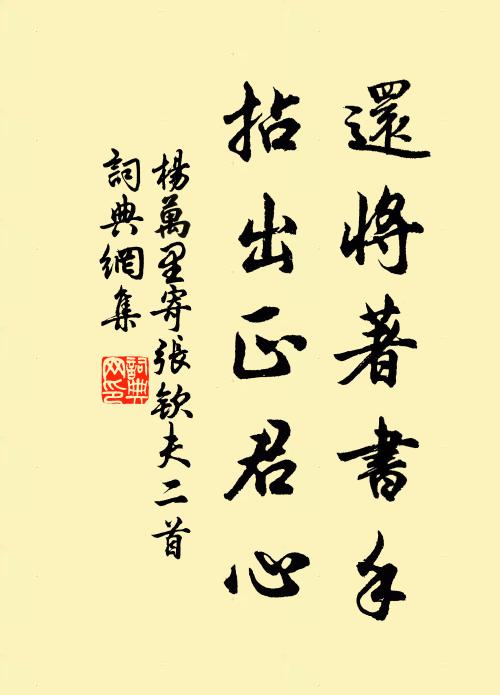 還將著書手
拈出正君心
楊萬里寄張欽夫二首
詞典網集
詞典网印